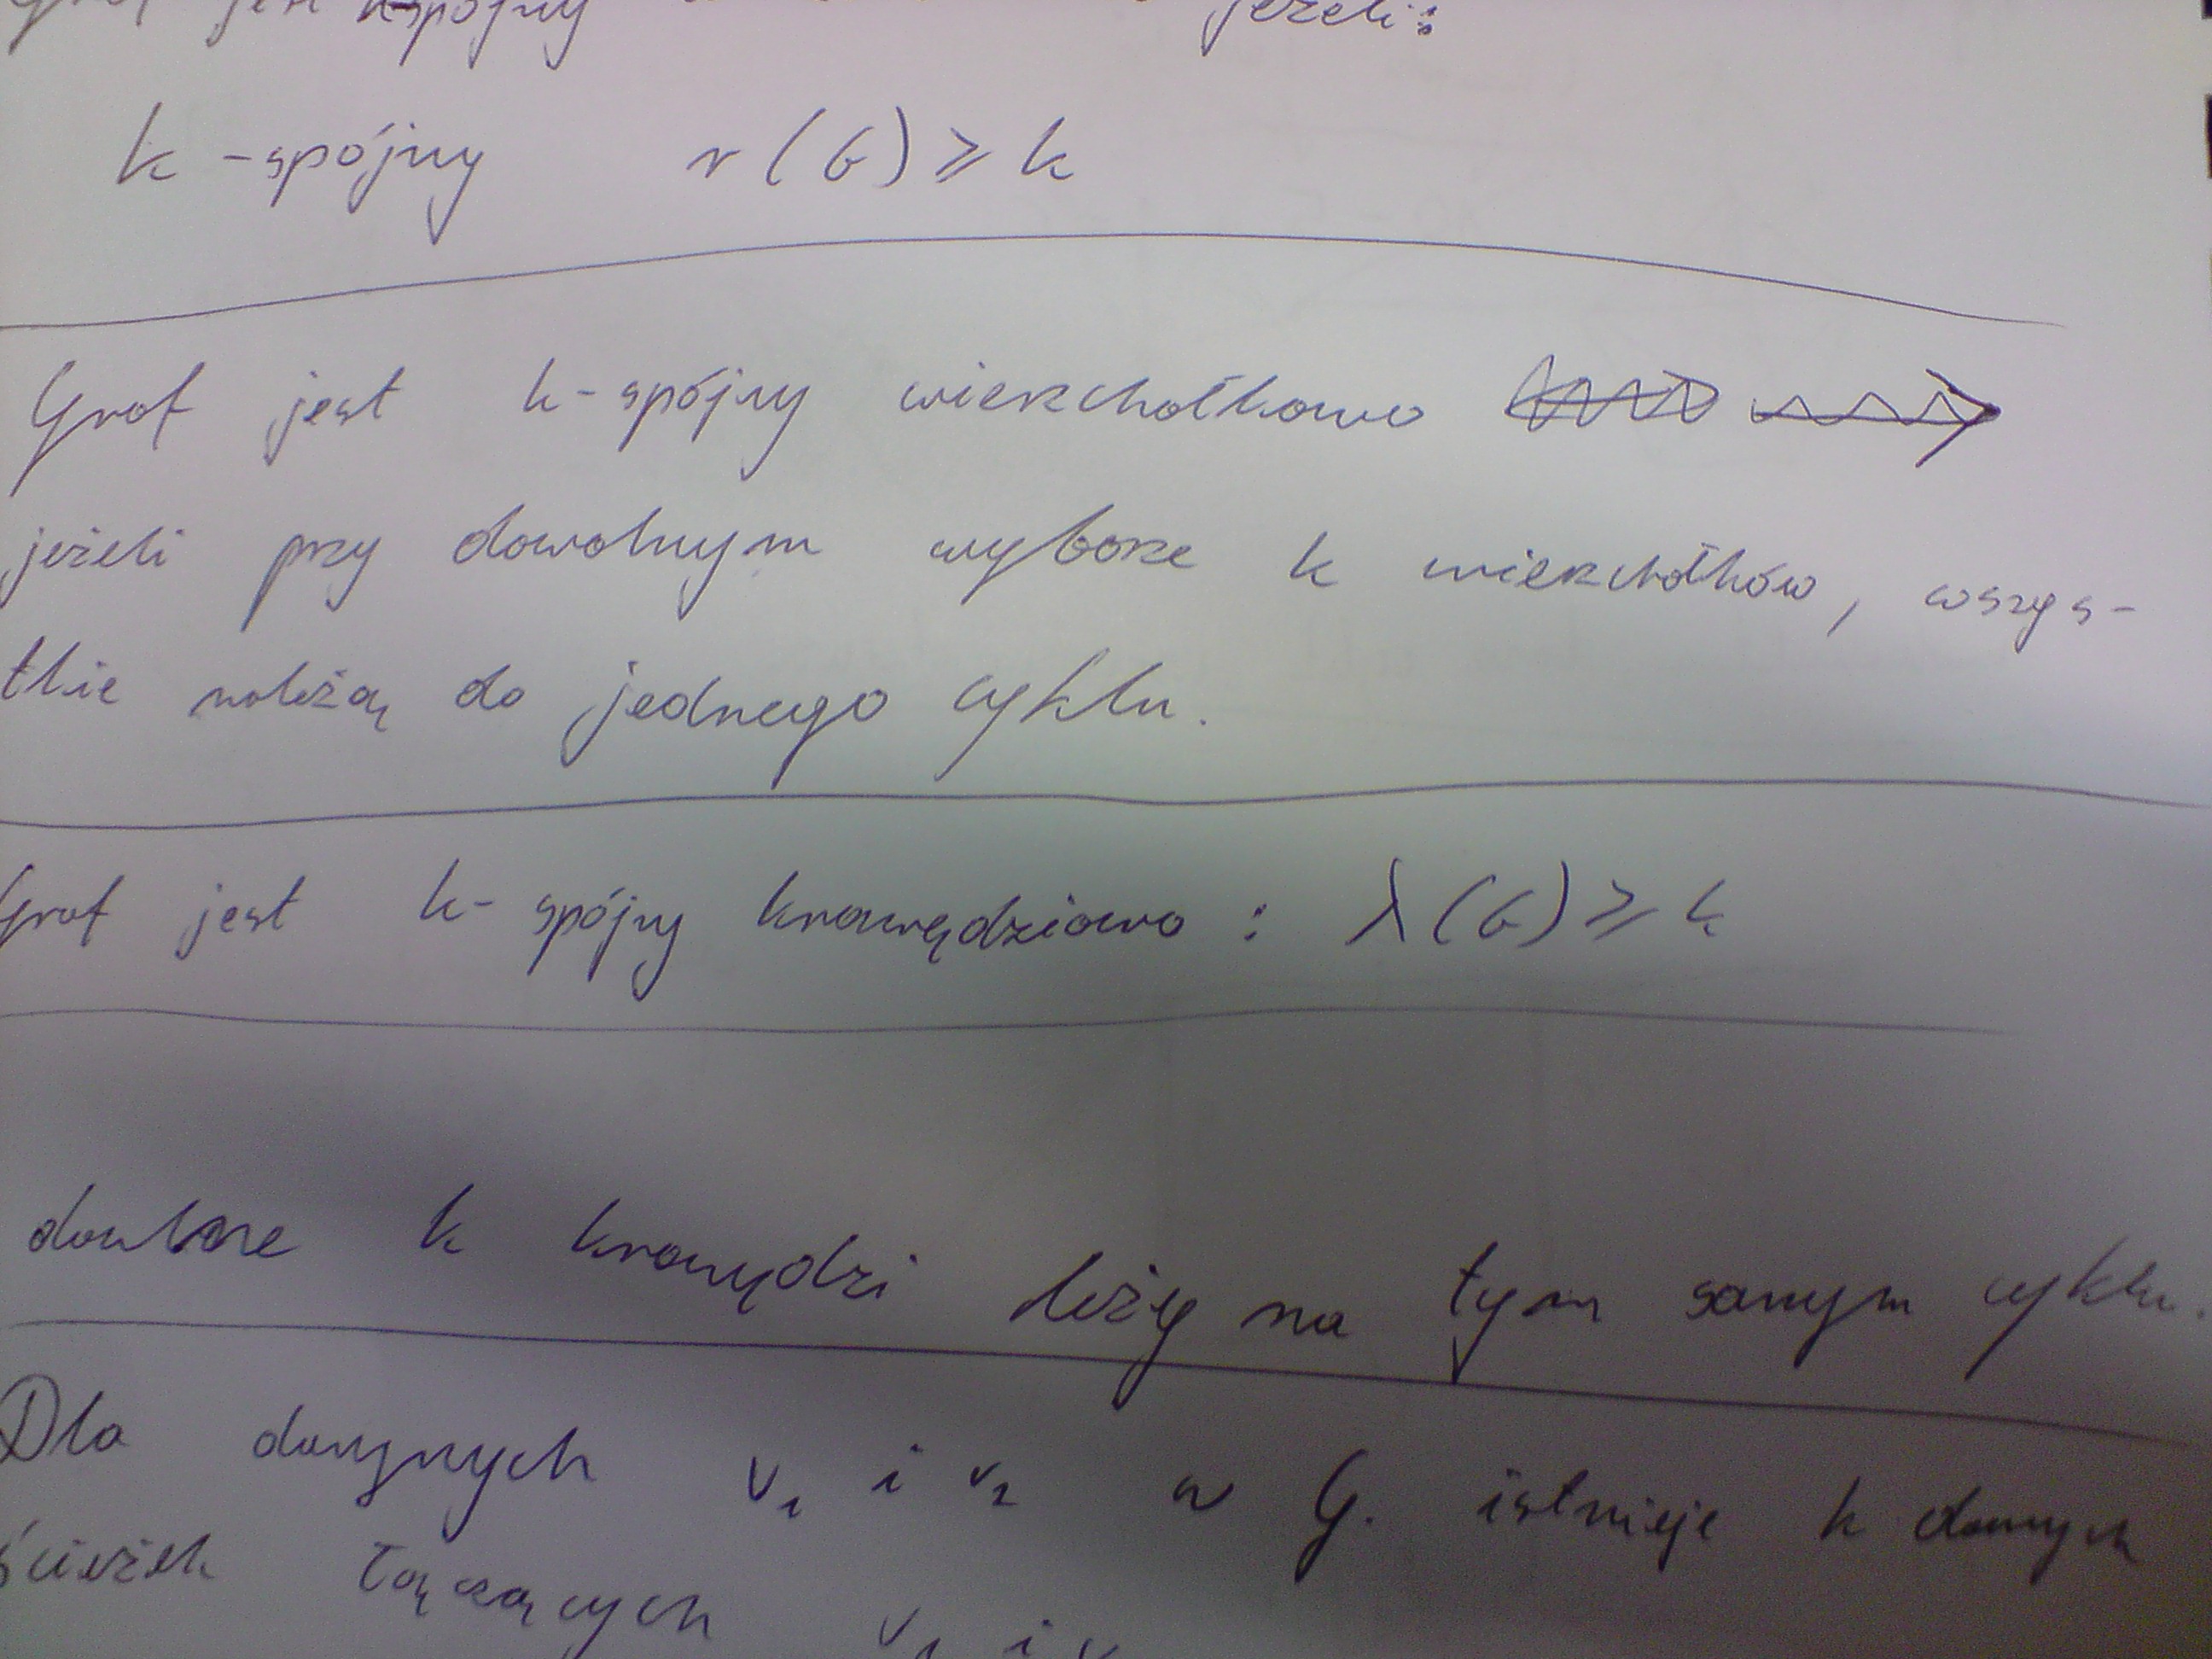 Graf jest k-spójny jeżeli:
k - spójny r(G) ≥ k
Graf jest k-spójny wierzchołkowo
jeżeli przy dowolnym wyborze k wierzchołków, wszys-
tkie należą do jednego cyklu.
Graf jest k- spójny krawędziowo : λ(G) ≥ k
dowolne k krawędzi leży na tym samym cyklu.
Dla danych v₁ i v₂ w G. istnieje k
ścieżek łączących v₁ i v